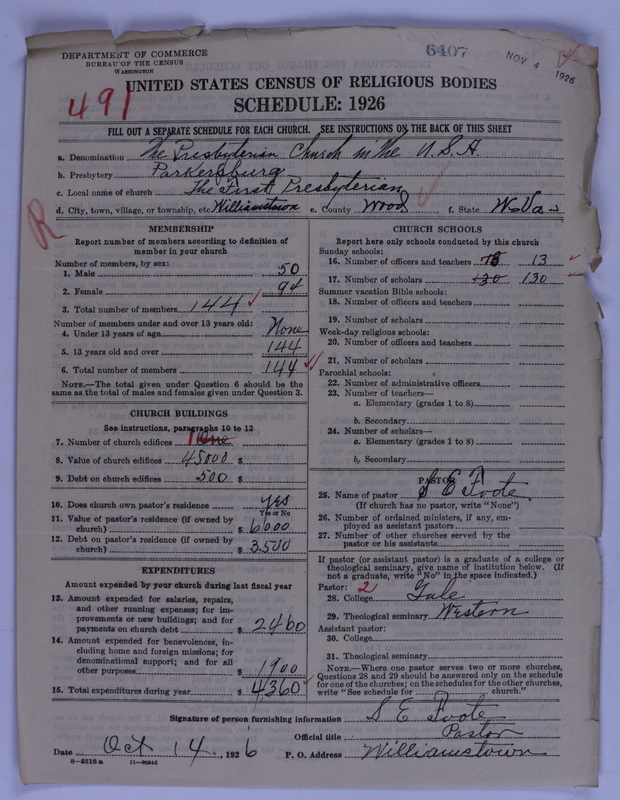 DEPARTMENT OF COMMERCE
BUREAU OF THE CENSUS
WASHINGTON
6407
NOV 4 1926
491
UNITED STATES CENSUS OF RELIGIOUS BODIES
SCHEDULE: 1926
FILL OUT A SEPARATE SCHEDULE FOR EACH CHURCH. SEE INSTRUCTIONS ON THE BACK OF THIS SHEET
a. Denomination The Presbyterian Church in the U.S.A.
b. Presbytery Parkersburg
c. Local name of church The First Presbyterian
d. City, town, village, or township, etc. Williamstown e. County Wood f. State W-Va-
R
MEMBERSHIP
Report number of members according to definition of
member in your church
Number of members, by sex:
1. Male 50
2. Female 94
3. Total number of members 144
Number of members under and over 13 years old:
4. Under 13 years of age None
5. 13 years old and over 144
6. Total number of members 144
NOTE.—The total given under Question 6 should be the
same as the total of males and females given under Question 3.
CHURCH BUILDINGS
See instructions, paragraphs 10 to 12
7. Number of church edifices 1 One
8. Value of church edifices 45000 $
9. Debt on church edifices 500 $
10. Does church own pastor's residence yes
Yes or No
11. Value of pastor's residence (if owned by
church) $ 6,000
12. Debt on pastor's residence (if owned by
church) $ 3,500
EXPENDITURES
Amount expended by your church during last fiscal year
13. Amount expended for salaries, repairs,
and other running expenses; for im-
provements or new buildings; and for
payments on church debt $ 2460
14. Amount expended for benevolences, in-
cluding home and foreign missions; for
denominational support; and for all
other purposes $ 1900
15. Total expenditures during year $ 4360
CHURCH SCHOOLS
Report here only schools conducted by this church
Sunday schools:
16. Number of officers and teachers 13 13
17. Number of scholars 130 130
Summer vacation Bible schools:
18. Number of officers and teachers
19. Number of scholars
Week-day religious schools:
20. Number of officers and teachers
21. Number of scholars
Parochial schools:
22. Number of administrative officers
23. Number of teachers—
a. Elementary (grades 1 to 8)
b. Secondary
24. Number of scholars—
a. Elementary (grades 1 to 8)
b. Secondary
PASTOR
25. Name of pastor S E Foote
(If church has no pastor, write "None")
26. Number of ordained ministers, if any, em-
ployed as assistant pastors
27. Number of other churches served by the
pastor or his assistants
If pastor (or assistant pastor) is a graduate of a college or
theological seminary, give name of institution below. (If
not a graduate, write "No" in the space indicated.)
Pastor: 2
28. College Yale
29. Theological seminary Western
Assistant pastor:
30. College
31. Theological seminary
NOTE.—Where one pastor serves two or more churches,
Questions 28 and 29 should be answered only on the schedule
for one of the churches; on the schedules for the other churches,
write "See schedule for church."
Signature of person furnishing information S E Foote
Official title Pastor
Date Oct 14, 1926 P. O. Address Williamstown
8—5518 a